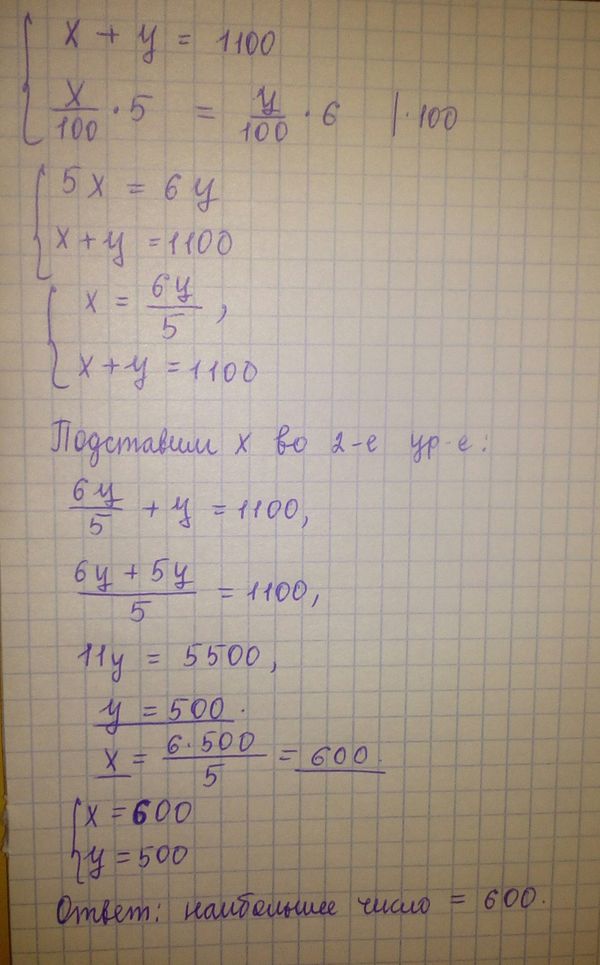 x + y = 1100
x/100 · 5 = y/100 · 6 | · 100
5x = 6y
x + y = 1100
x = 6y/5,
x + y = 1100
Подставим x во 2-е ур-е:
6y/5 + y = 1100,
(6y + 5y)/5 = 1100,
11y = 5500,
y = 500.
x = (6·500)/5 = 600.
x = 600
y = 500
Ответ: наибольшее число = 600.